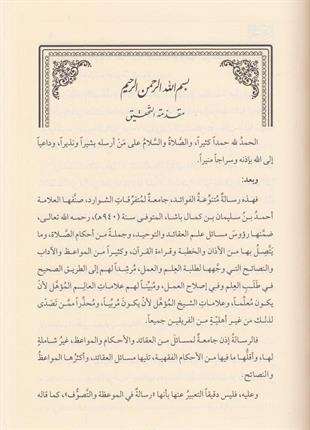 بسم الله الرحمن الرحيم
مقدمة التحقيق
الحمدُ لله حمداً كثيراً، والصَّلاةُ والسَّلامُ على مَنْ أرسله بشيراً ونذيراً، وداعياً
إلى الله بإذنه وسراجاً منيراً.
وبعد:
فهذه رسالةٌ مُتنوِّعةُ الفوائد، جامعةٌ لمتفرِّقاتِ الشوارد، صنَّفها العلامة
أحمدُ بنُ سليمان بن كمال باشا، المتوفى سنة (٩٤٠هـ)، رحمه الله تعالى،
ضمَّنها رؤوسَ مسائل علم العقائد والتوحيد، وجملةً من أحكام الصَّلاة، وما
يتَّصِلُ بها من الأذان والخطبة وقراءة القرآن، وكثيراً من المواعظ والآداب
والنصائح التي وجَّهها لطلبة العِلم والعمل، مُرشِداً لهم إلى الطريق الصحيح
في طَلَبِ العِلم وفي إصلاح العمل، ومُبيِّناً لهم علاماتِ العالِم المؤهَّل لأنْ
يكون مُعلِّماً، وعلاماتِ الشيخ المؤهَّل لأنْ يكونَ مُربِّياً، ومُحذِّراً ممَّن تَصَدَّى
لذلك من غير أهليَّةٍ من الفريقين جميعاً.
فالرسالةُ إذن جامعةٌ لمسائل من العقائد والأحكام والمواعظ، غيرُ شاملةٍ
لها، وأقلُّها ما فيها من الأحكام الفقهية، تليها مسائل العقائد، وأكثرُها المواعظُ
والنصائح.
وعليه، فليس دقيقاً التعبيرُ عنها بأنها «رسالة في الموعظة والتصوُّف»، كما قاله